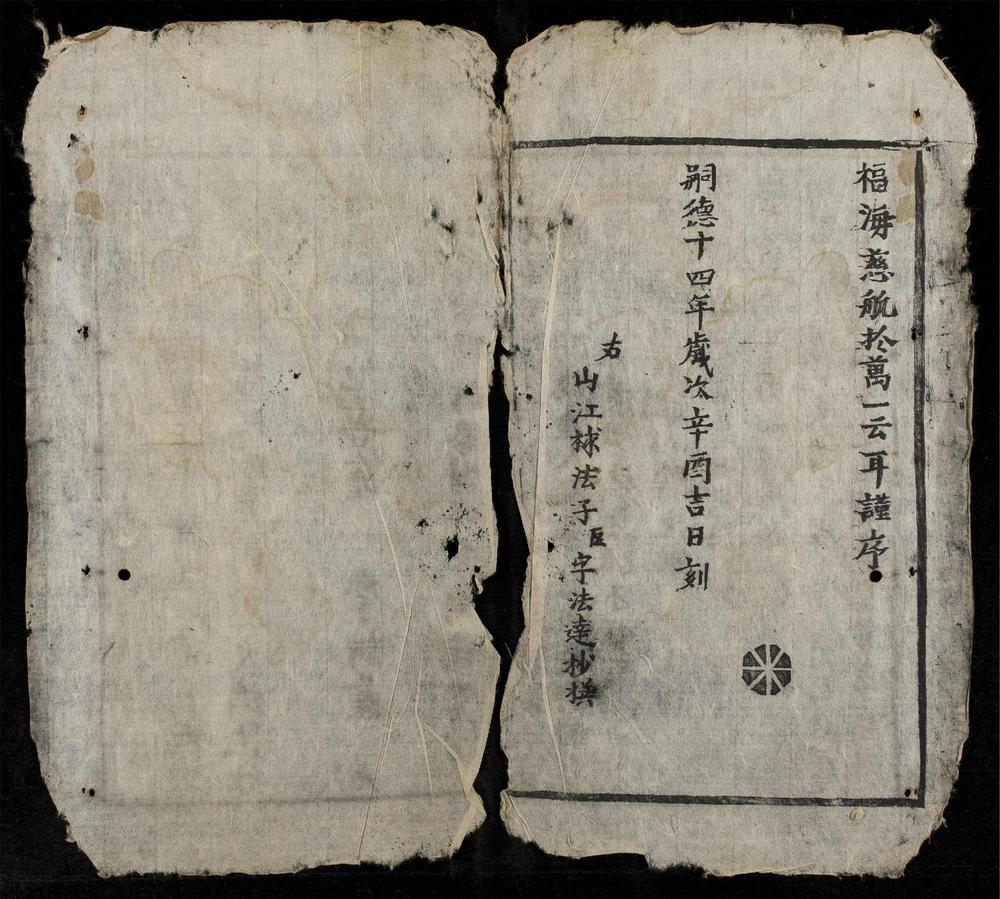 福海慈航於萬一云耳謹序
嗣德十四年歲次辛酉吉日刻
右
山江林法子臣字法達抄撰